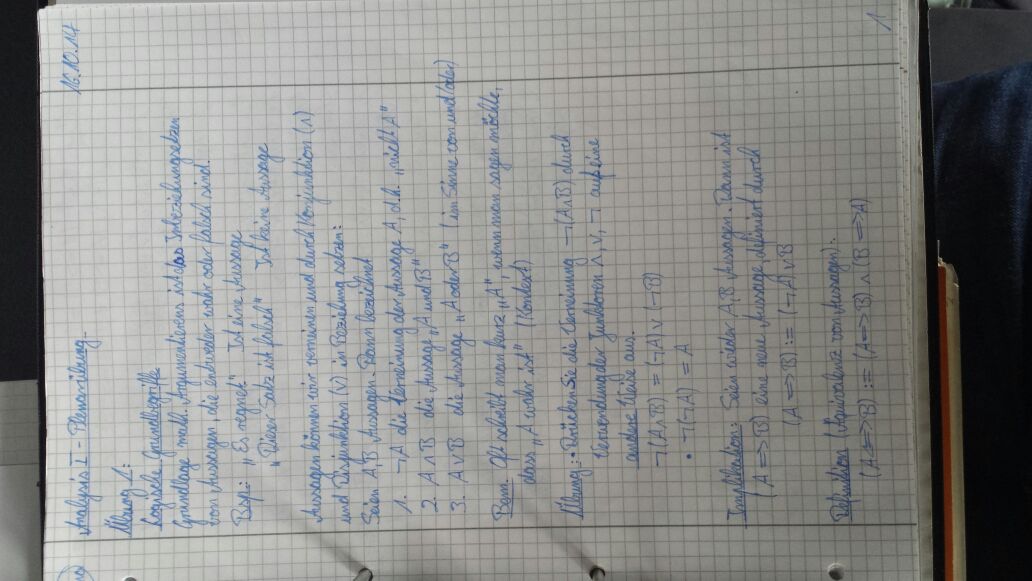 16.10.14
Analysis I - Plenarübung
Übung 1:
Logische Grundbegriffe
Grundlage math. Argumentierens ist das Inbeziehungsetzen
von Aussagen, die entweder wahr oder falsch sind.
Bsp.: „Es regnet" Ist eine Aussage
„Dieser Satz ist falsch" Ist keine Aussage
Aussagen können wir verneinen und durch Konjunktion (∧)
und Disjunktion (∨) in Beziehung setzen:
Seien A, B Aussagen. Dann bezeichnet
1. ¬A die Verneinung der Aussage A, d.h. „nicht A"
2. A∧B die Aussage „A und B"
3. A∨B die Aussage „A oder B" (im Sinne von und/oder)
Bem Oft schreibt man kurz „A" wenn man sagen möchte,
dass „A wahr ist" (Kontext)
Übung: • Drücken Sie die Verneinung ¬(A∧B) durch
Verwendung der Junktoren ∧, ∨, ¬ auf eine
andere Weise aus.
¬(A∧B) = (¬A)∨(¬B)
• ¬(¬A) = A
Implikation: Seien wieder A, B Aussagen. Dann ist
(A => B) eine neue Aussage definiert durch
(A => B) := (¬A)∨B
Definition (Äquivalenz von Aussagen):
(A <=> B) := (A => B) ∧ (B => A)
1